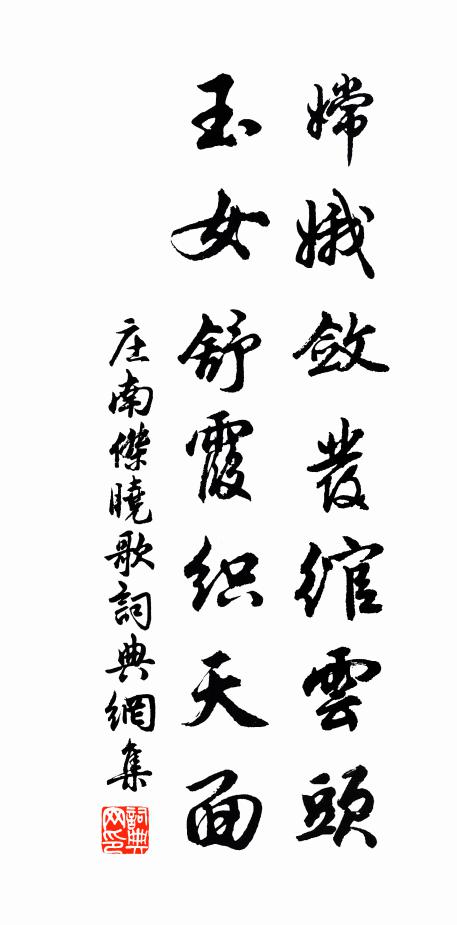 嫦娥斂發綰雲頭
玉女舒霞织天面
庄南傑曉歌詞典網集
詞典網印